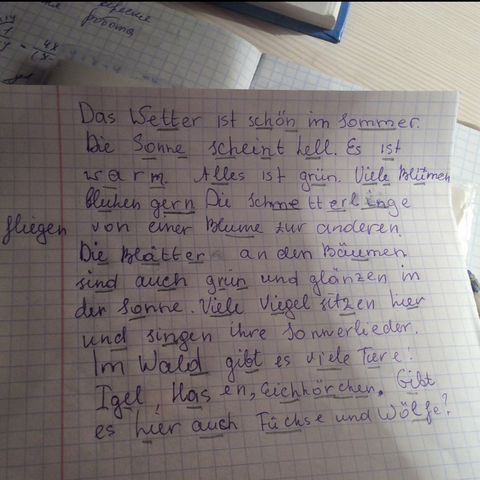 работа
Das Wetter ist schön im Sommer.
Die Sonne scheint hell. Es ist
warm. Alles ist grün. Viele Blümen
bluhen gern Die Schmetterlinge
fliegen von einer Blume zur anderen.
Die Blätter an den Bäumen
sind auch grün und glänzen in
der Sonne. Viele Viegel sitzen hier
und singen ihre Sommerlieder.
Im Wald gibt es viele Tiere!
Igel, Hasen, Eichhörchen. Gibt
es hier auch Füchse und Wölfe?